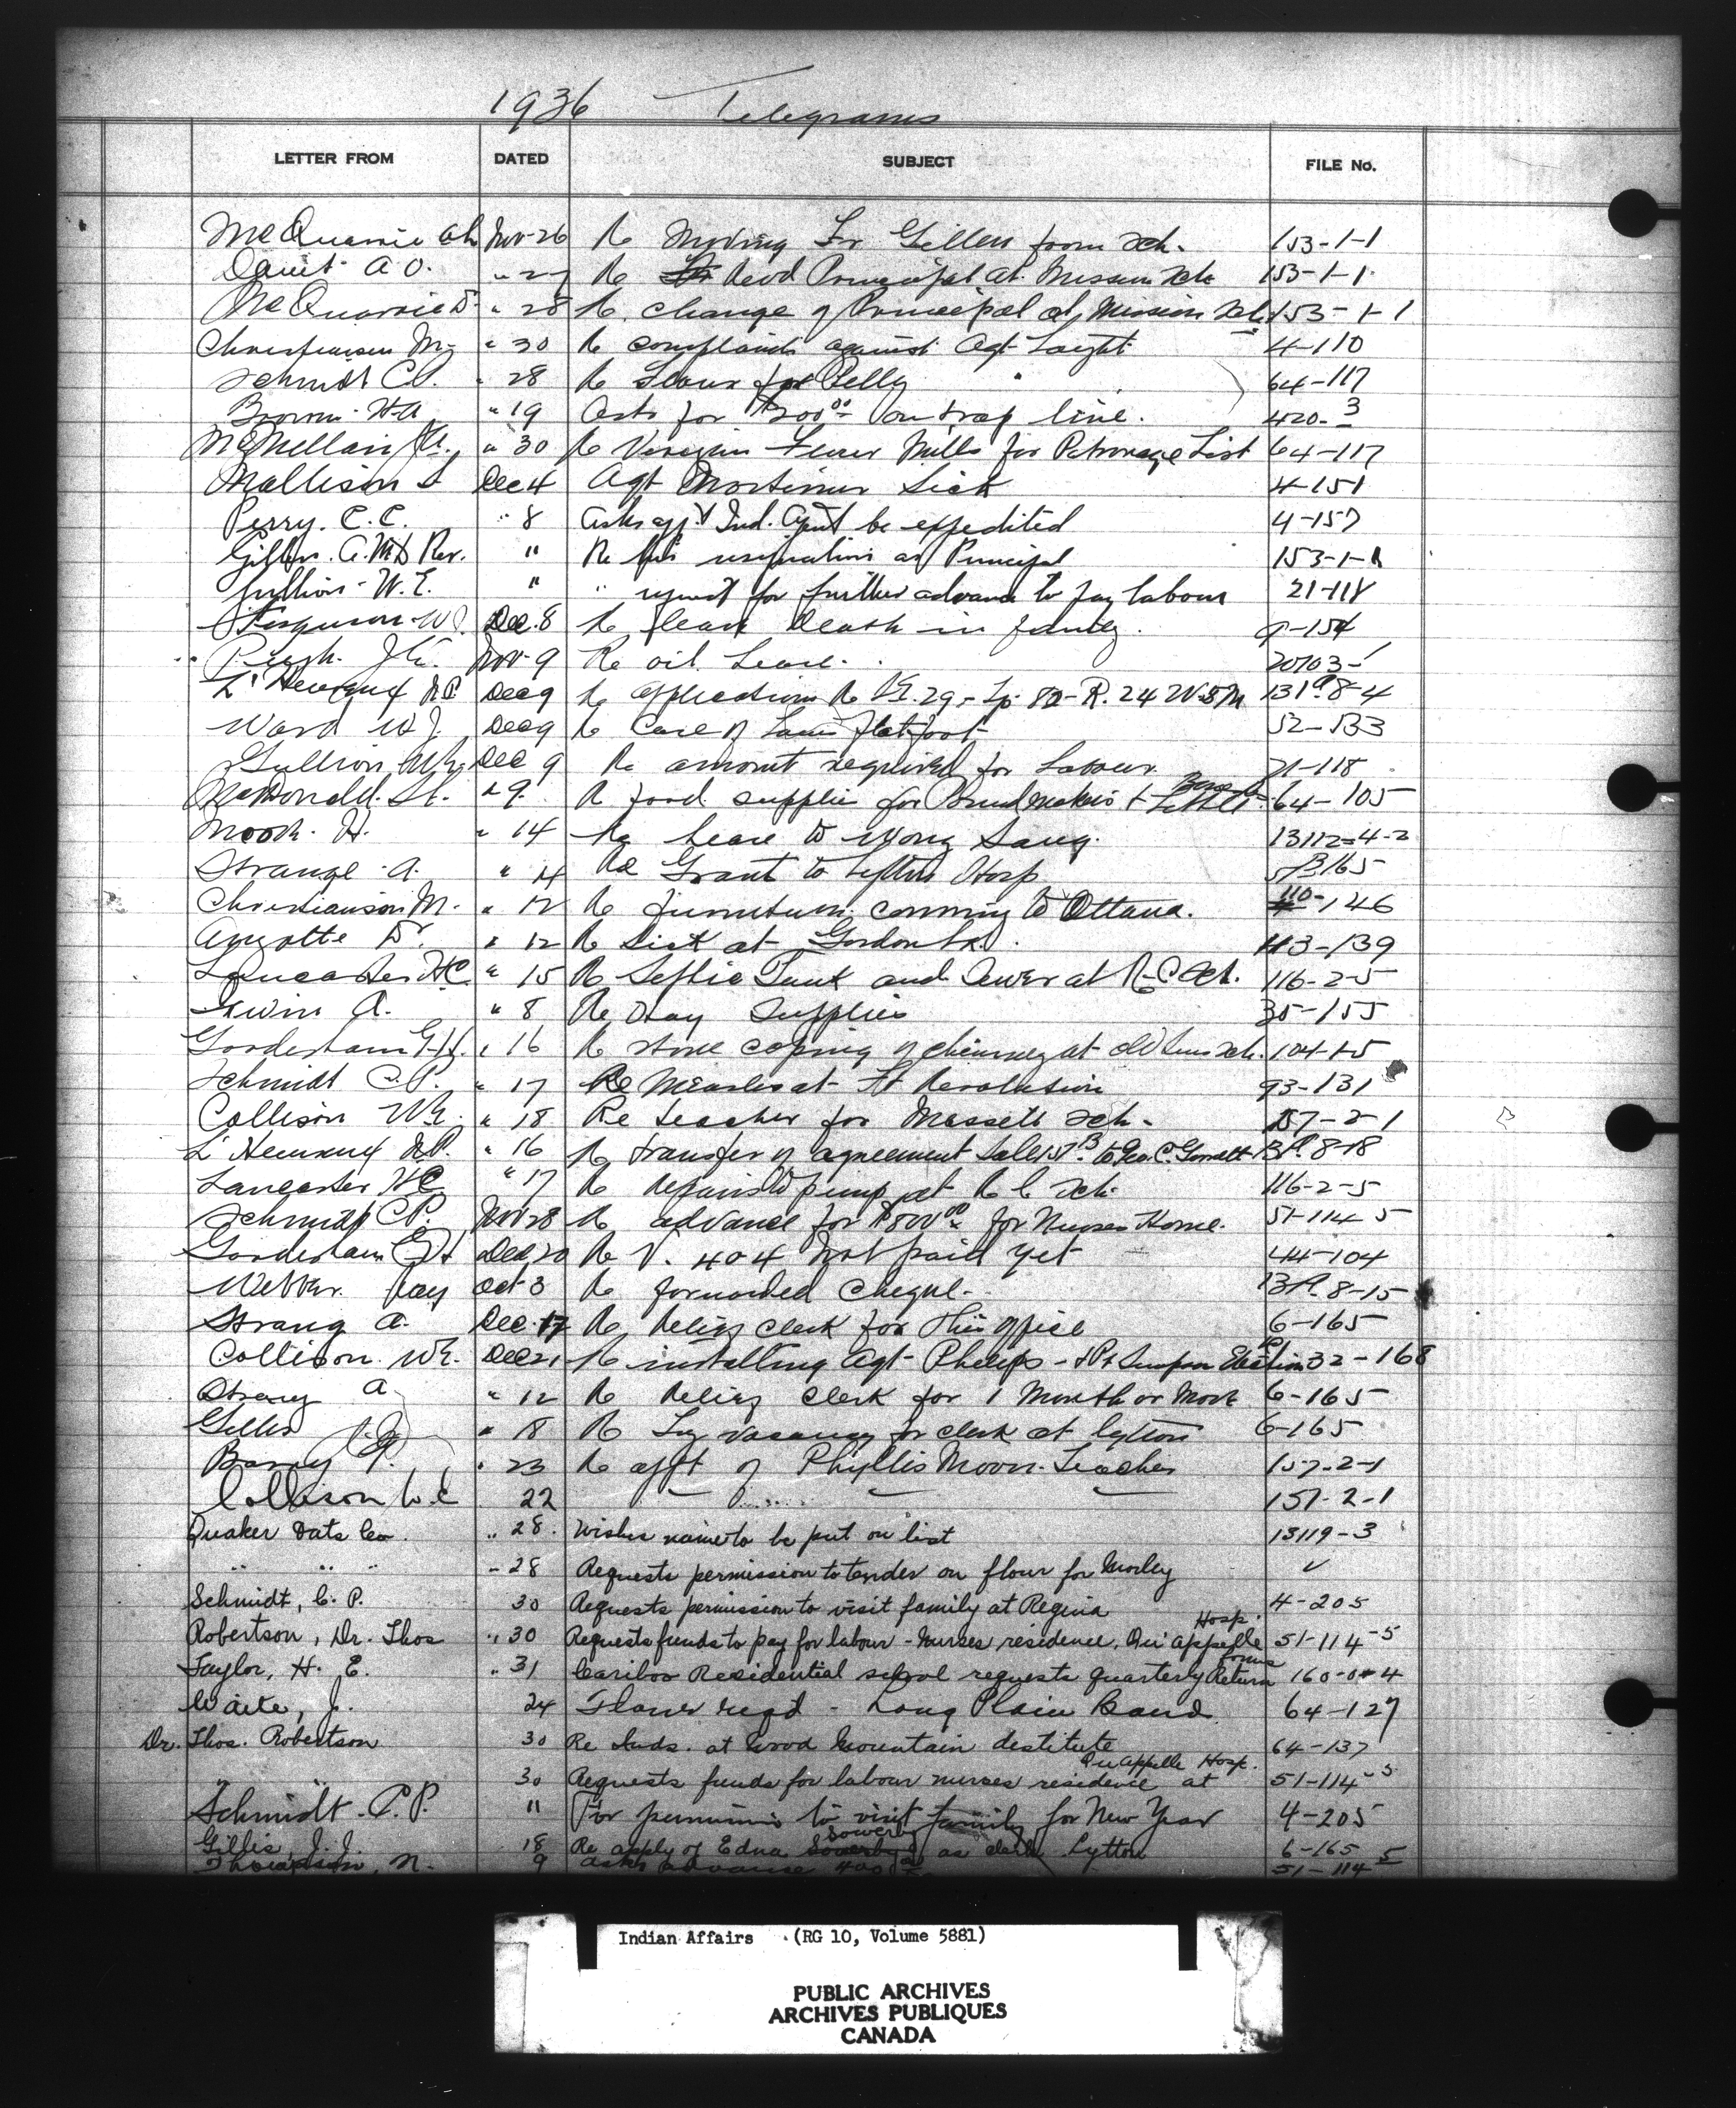 1936 Telegrams
LETTER FROM DATED SUBJECT FILE No.
McQuarrie Nov-26 Re Moving Gillen from Sch. 153-1-1
Daunt A O. " 27 Re Principal at Mission Sch 153-1-1
McQuarrie D. " 28 Re change of Principal at Mission Sch 153-1-1
Christianson M. " 30 Re complaints against Agt Laight 4-110
Schmidt C.P. " 28 Re Flour for Pelly 64-117
Brown H-A " 19 Asks for $200 00 on trap line. 420-3
" 30 Re Flour Mills for Patronage List 64-117
Mallison Dec 4 Agt Mortimer Sick 4-151
Perry. C.C. " 8 Asks app't Ind. Agent be expedited 4-157
Rev. " Re his resignation as Principal 153-1-1
Gullion W.E. " " request for further advance to pay labour 21-118
Ferguson W. Dec. 8 Re leave Death in family. -154
Pugh. J.E. Nov-9 Re oil Lease. 20703-1
L'Heureux Dec 9 Re application Re 29, Tp. 82-R. 24 W5M 8-4
Ward W J. Dec 9 Re Care of Flatfoot 52-133
Gullion Dec 9 Re amount required for Labour 21-118
McDonald. " 9 Re food supplies for & 64-105
Mook. H. " 14 Re Lease to Wong Sang. 13112-4-2
Strange A. " 14 Re Grant to Lytton Hosp 165
Christianson M. " 12 Re furniture coming to Ottawa. 110-146
Amyotte Dr. " 12 Re Sick at Gordon Sch. -139
Lancaster HC " 15 Re Septic Tank and Sewer at R-C Sch. 116-2-5
Irwin A. " 8 Re Day Supplies 35-155
Gooderham G.H. " 16 Re stone coping of chimney at Old Sun Sch. 104-1-5
Schmidt C.P. " 17 Re Measles at Ft 93-131
Collison W.E. " 18 Re teacher for Massett Sch. 157-2-1
L'Heureux " 16 Re transfer of agreement Sale to Geo. C. 8-18
Lancaster HC " 17 Re Repairs to pump at R C Sch. 116-2-5
Schmidt CP. Nov 28 Re advance for $800 00 for Nurses Home. 51-114-5
Gooderham G H Dec 20 Re V. 404 Not paid yet 44-104
Webber. Ray Oct 3 Re forwarded Cheque. 8-15
Strang A. Dec. 17 Re Relief clerk for this office 6-165
Collison. W.E. Dec 21 Re installing Agt Phelps - & Pt Simpson Election 32-168
Strang A " 12 Re Relief clerk for 1 Month or More 6-165
Gillis " 18 Re vacancy for clerk at Lytton 6-165
Barry " 23 Re appt of Phyllis Moon. Teacher 157-2-1
Collison W.E 22 " " " 157-2-1
Quaker Oats Co. " 28. Wishes name to be put on list 13119-3
" " " " 28 Requests permission to tender on flour for Morley ✓
Schmidt, C. P. 30 Requests permission to visit family at Regina 4-205
Robertson, Dr. Thos " 30 Requests funds to pay for labour - Nurses residence, Qu'appelle Hosp. 51-114-5
Taylor, H. E. " 31 Cariboo Residential school requests quarterly Return forms 160-0-4
Waite, J. 24 Flour reqd - Long Plain Band 64-127
Dr. Thos. Robertson 30 Re Inds. at Wood Mountain destitute 64-137
" " 30 Requests funds for labour nurses residence at Qu Appelle Hosp. 51-114-5
Schmidt. C.P. " For permission to visit family for New Year 4-205
Gillis, J. J. 18 Re apply of Edna Sowerby as clerk Lytton 6-165
Thompson, N. 9 Asks advance 400 51-114-5
Indian Affairs (RG 10, Volume 5881)
PUBLIC ARCHIVES
ARCHIVES PUBLIQUES
CANADA